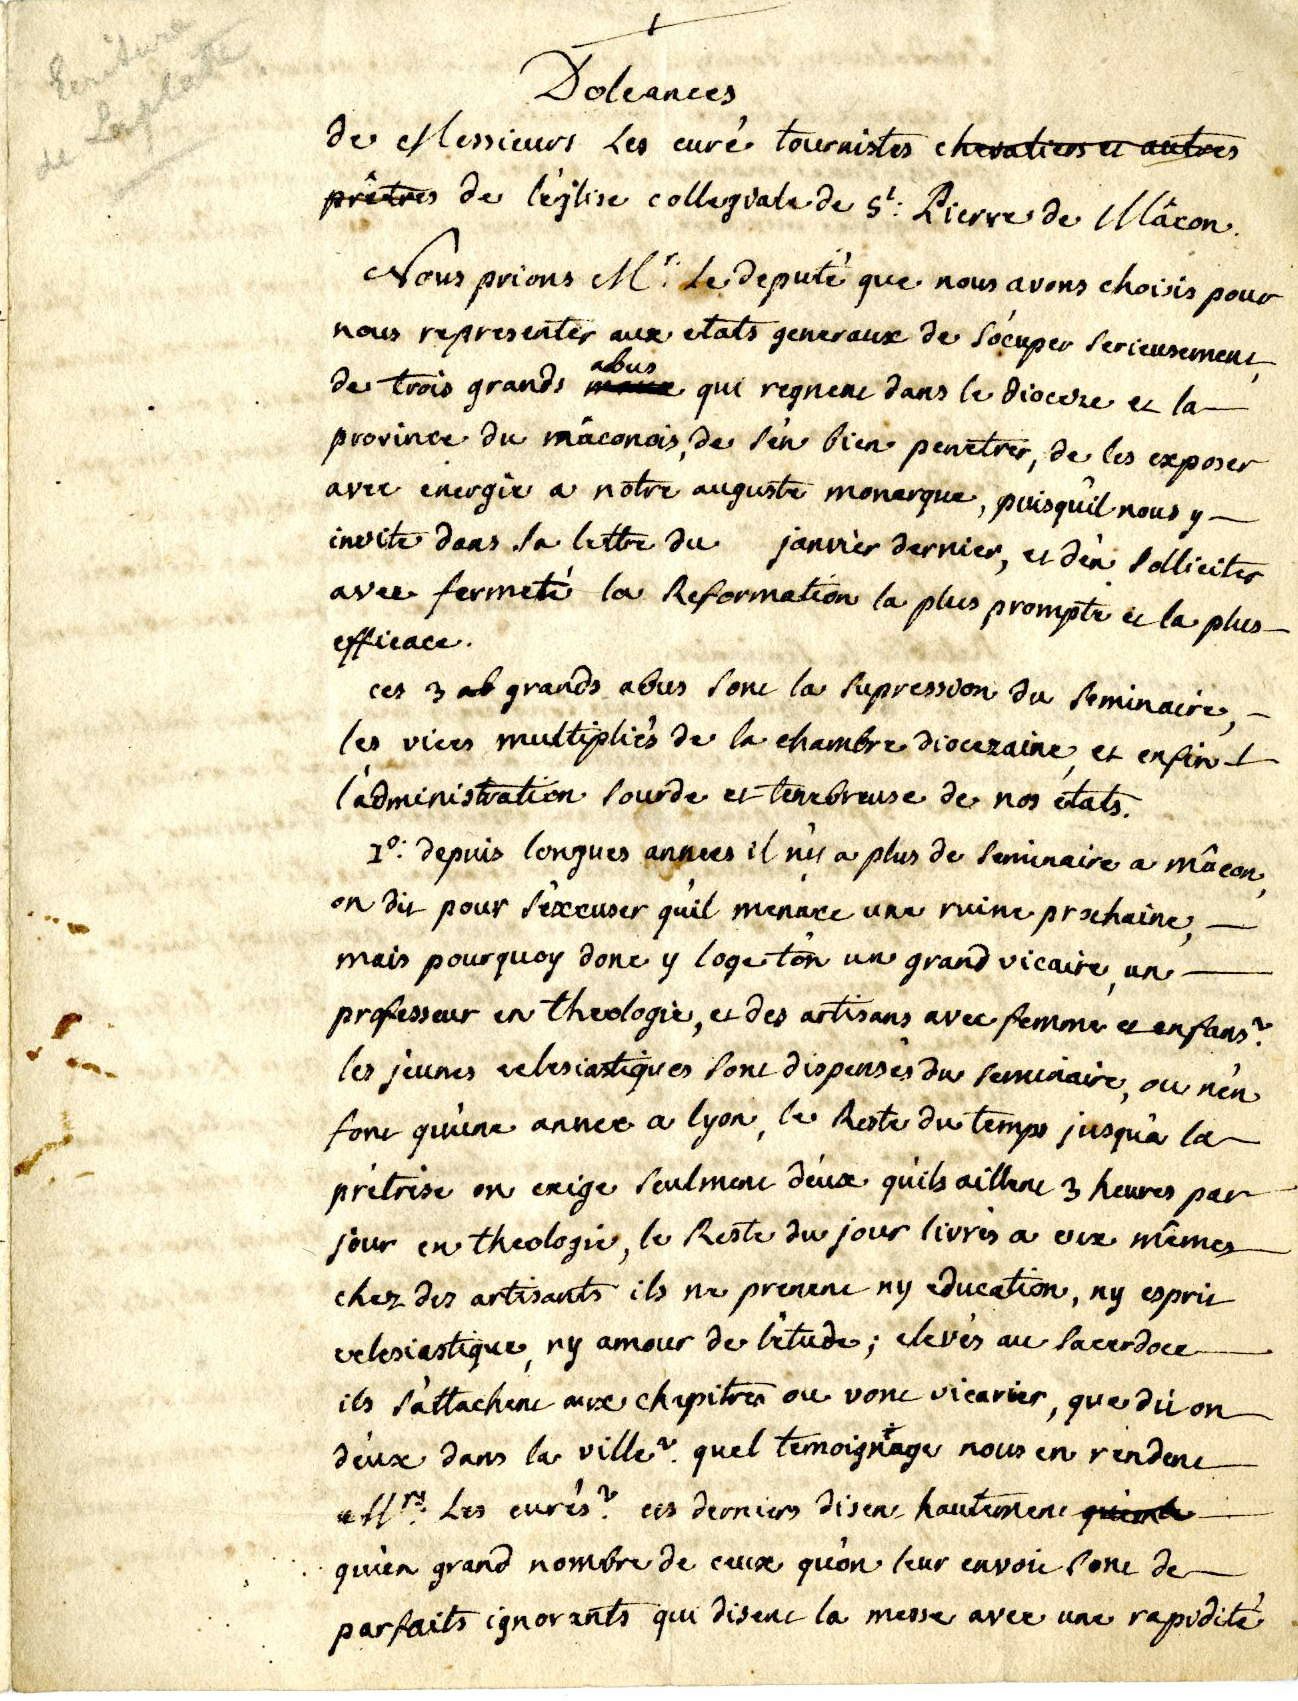 Ecriture
de Laplatte
1
Doleances
de Messieurs Les curé tournistes chevaliers et autres
prêtres de l'église collegiale de St: Pierre de Mâcon.
Nous prions Mr: Le deputé que nous avons choisis pour
nous representer aux etats generaux de s'ócuper serieusement
de trois grands maux abus qui regnent dans le dioceze et la
province du mâconois, de s'en bien penetrer, de les exposer
avec énergie a notre auguste monarque, puisqu'il nous y
invite dans sa lettre du janvier dernier, et d'en solliciter
avec fermeté la Reformation la plus prompte et la plus
efficace.
ces 3 ab grands abus sont la supression du seminaire,
les vices multipliés de la chambre diocezaine, et enfin
l'administration sourde et tenebreuse de nos états.
1o: depuis longues annees il n'y a plus de seminaire a mâcon,
on dit pour s'excuser qu'il menace une ruine prochaine,
mais pourquoy donc y loge t'on un grand vicaire, un
professeur en theologie, et des artisans avec femme et enfans?
les jeunes eclesiastiques sont dispensés du seminaire, ou n'en
font qu'une annee a lyon, le Reste du temps jusqu'a la
prétrise on exige seulment d'eux qu'ils aillent 3 heures par
jour en theologie, le Reste du jour livrés a eux mêmes
chez des artisants ils ne prenent ny education, ny esprit
eclesiastique, ny amour de l'étude; elevés au sacerdoce
ils s'attachent aux chapitres ou vont vicarier, que dit on
d'eux dans la ville? quel temoignage nous en rendent
Mrs: Les curés? ces derniers disent hautement
qu'en grand nombre de ceux qu'on leur envoie sont de
parfaits ignorants qui disent la messe avec une rapidité